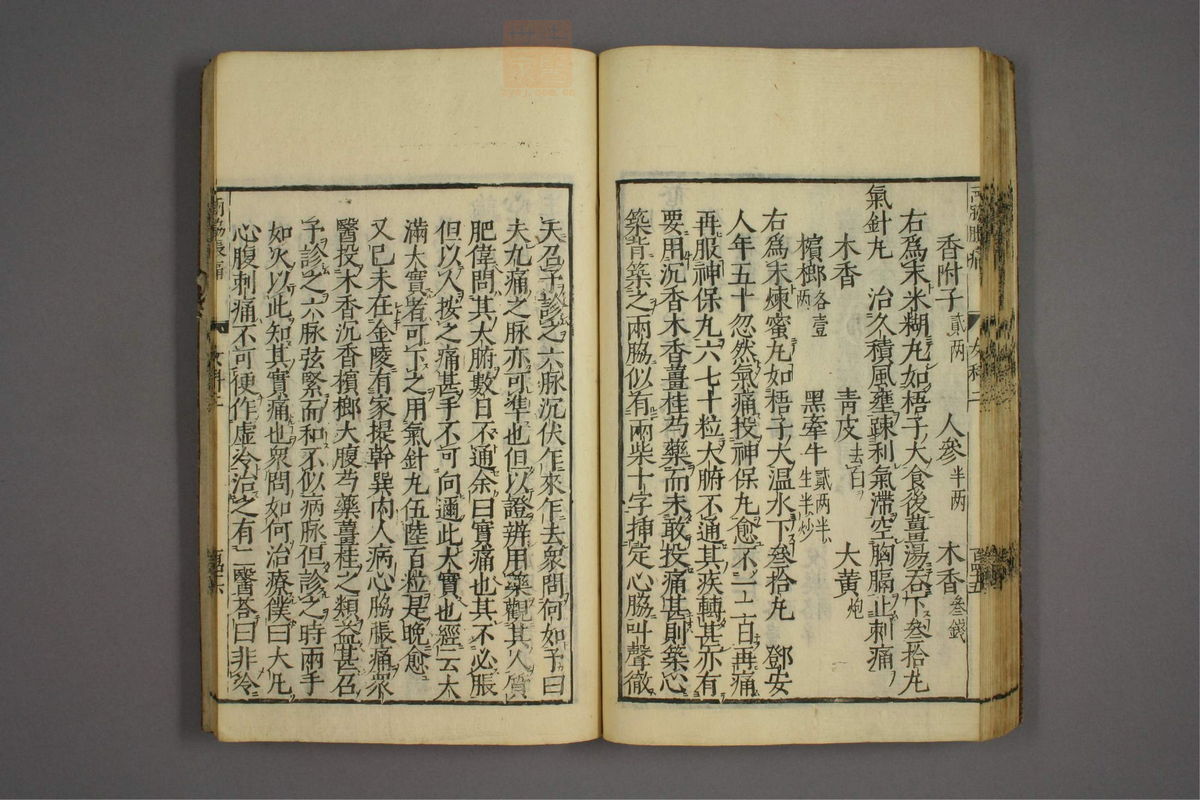 香附子貳两　人參半两　木香叁錢
右爲末米糊丸如梧子大食後薑湯吞下叁拾丸
氣針丸　治久積風壅踈利氣滯空胸膈止刺痛
木香　青皮去白　大黄炮
檳榔各壹两　黑牽牛貳两半生半炒
右爲末煉蜜丸如梧子大温水下叁拾丸　鄧安
人年五十忽然氣痛投神保丸愈不一二日再痛
再服神保丸六七十粒大腑不通其疾轉甚亦有
要用沉香木香薑桂芍藥而未敢投痛甚則築心
築背築之兩脇似有兩柴十字揷定心脇叫聲徹
天召予診之六脉沉伏乍來乍去衆問何如予曰
夫九痛之脉亦可凖也但以證辨用藥觀其人質
肥偉問其大腑數日不通余曰實痛也其不必脹
但以人按之痛甚手不可向邇此大實也經云大
滿大實者可下之用氣針丸伍陸百粒是晚愈
又己未在金陵有家提幹巽内人病心脇脹痛衆
醫投木香沉香檳榔大腹芍藥薑桂之類益甚召
予診之六脉弦緊而和不似病脉但診之時兩手
如火以此知其實痛也衆問如何治療僕曰大凡
心腹刺痛不可便作虚冷治之有一醫荅曰非冷